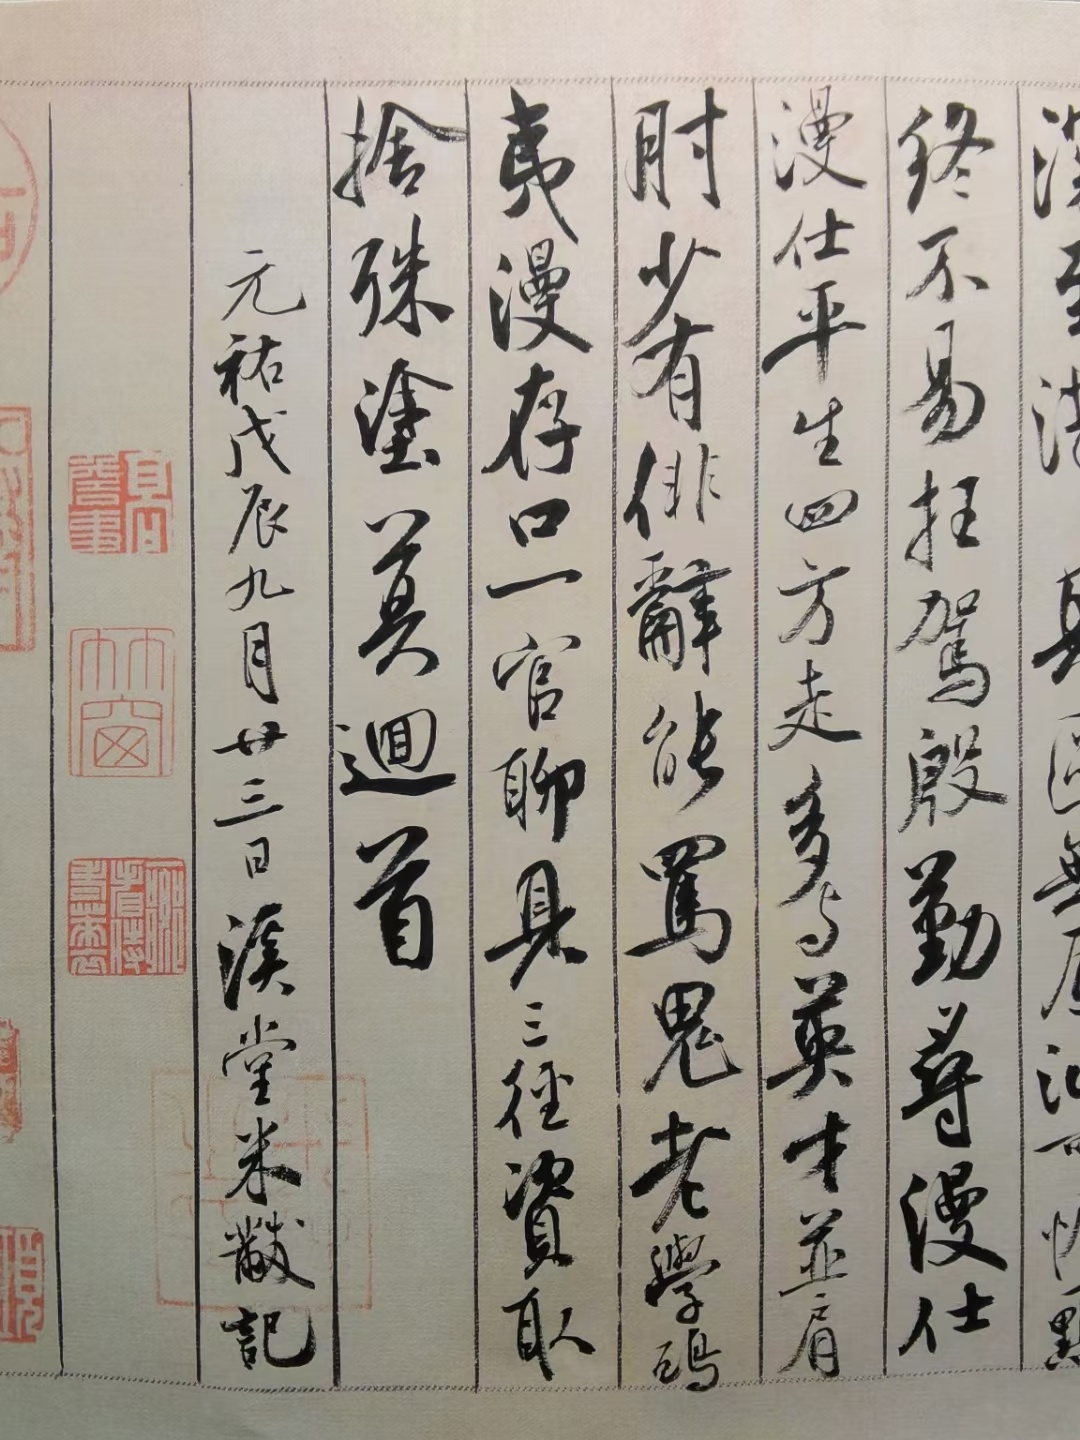 深至湛具區無底沚可怜點
終不易枉駕殷勤尋漫仕
漫仕平生四方走多与英才並肩
肘少有俳辭能罵鬼老學鴟
夷漫存口一官聊具三徑資取
捨殊塗莫迴首
元祐戊辰九月廿三日溪堂米黻記
竹窗